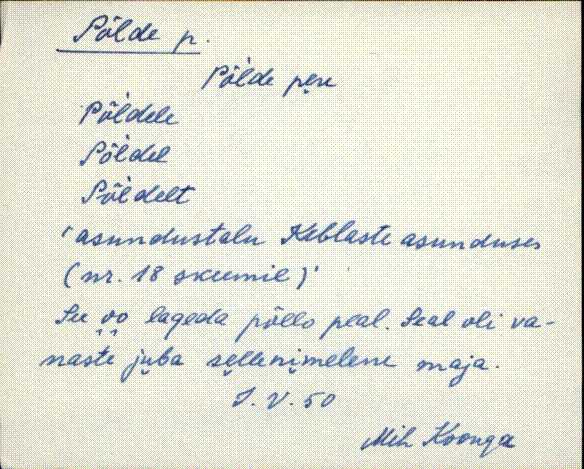 Põlde p.
Põl̀de pęrɛ
Põl̀dele
Põl̀del
Põl̀delt
'asundustalu Keblaste asunduses
(nr. 18 skeemil)'
Su̬u̬ lageda põllo peal. Seal oli va-
naste ju̬ba sęllenimelene maja.
I. V. 50
Mih Koonga